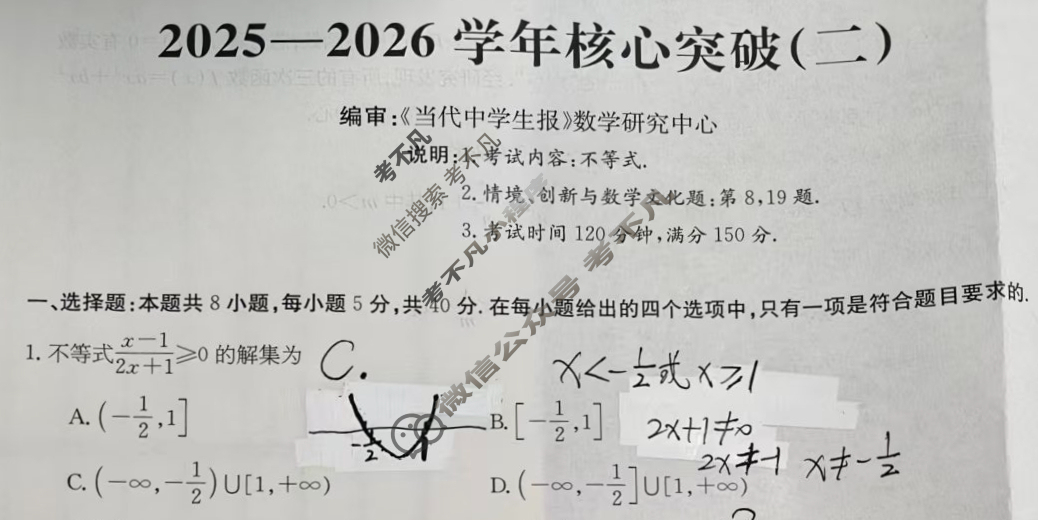 2025—2026 学年核心突破(二)
编审:《当代中学生报》数学研究中心
说明:1. 考试内容:不等式.
2. 情境、创新与数学文化题:第 8,19 题.
3. 考试时间 120 分钟,满分 150 分.
一、选择题:本题共 8 小题,每小题 5 分,共 40 分. 在每小题给出的四个选项中,只有一项是符合题目要求的.
1. 不等式\frac{x-1}{2x+1}≥0 的解集为 C.
x<-\frac{1}{2}或 x≥1
A. (-\frac{1}{2},1]
-\frac{1}{2} 1
B. [-\frac{1}{2},1]
2x+1≠0
2x≠-1 x≠-\frac{1}{2}
C. (-∞,-\frac{1}{2})∪[1,+∞)
D. (-∞,-\frac{1}{2}]∪[1,+∞)
考不凡
微信搜索 考不凡
考不凡小程序
微信公众号 考不凡